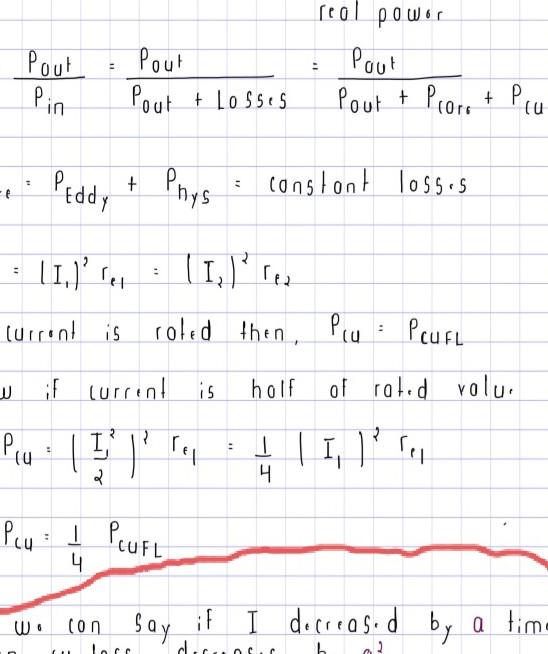 real power
Pout / Pin = Pout / Pout + Losses = Pout / Pout + Pcore + Pcu
e = PEddy + Phys = constant losses
= (I₁)² re1 = (I₂)² re2
current is rated then, Pcu = PCUFL
w if current is half of rated value
Pcu = (I₁² / 2)² re1 = 1/4 (I₁)² re1
Pcu = 1/4 PCUFL
we can say if I decreased by a time